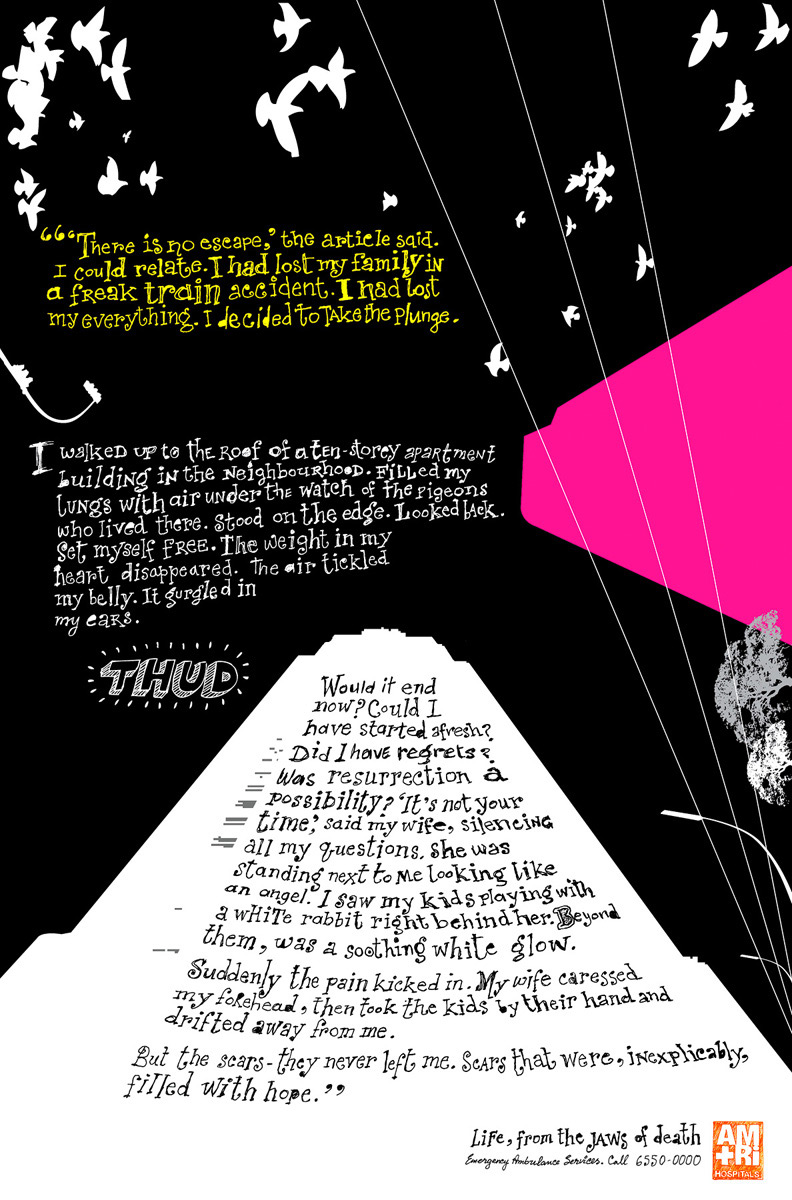 “‘There is no escape,’ the article said.
I could relate. I had lost my family in
a freak train accident. I had lost
my everything. I decided to take the plunge.
I walked up to the roof of a ten-storey apartment
building in the neighbourhood. Filled my
lungs with air under the watch of the pigeons
who lived there. Stood on the edge. Looked back.
Set myself free. The weight in my
heart disappeared. The air tickled
my belly. It gurgled in
my ears.
THUD
Would it end
now? Could I
have started afresh?
Did I have regrets?
Was resurrection a
possibility? ‘It's not your
time,’ said my wife, silencing
all my questions. She was
standing next to me looking like
an angel. I saw my kids playing with
a white rabbit right behind her. Beyond
them, was a soothing white glow.
Suddenly the pain kicked in. My wife caressed
my forehead, then took the kids by their hand and
drifted away from me.
But the scars - they never left me. Scars that were, inexplicably,
filled with hope.”
Life, from the jaws of death
Emergency Ambulance Services. Call 6550-0000
AM
+Ri
HOSPITALS